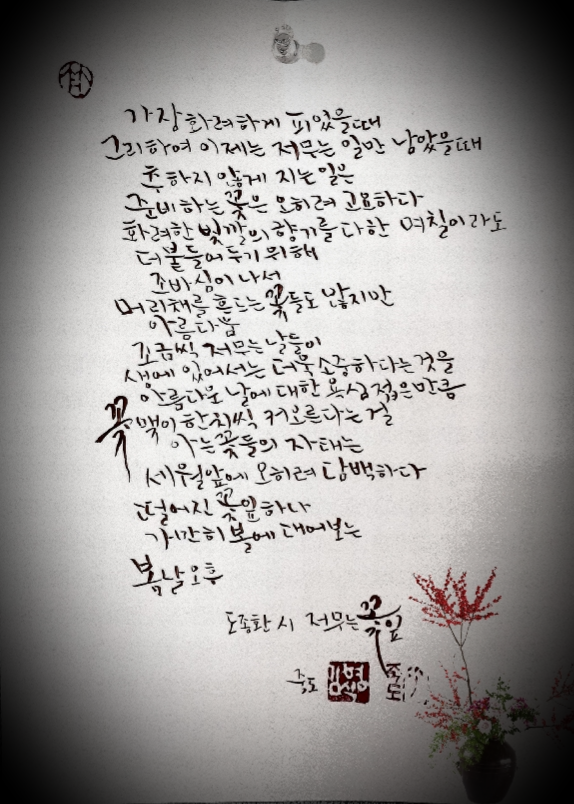 가장 화려하게 피었을때
그리하여 이제는 저무는 일만 남았을때
추하지 않게 지는 일은
준비하는 꽃은 오히려 고요하다
화려한 빛깔의 향기를 다한 며칠이라도
더 붙들어두기 위해
조바심이 나서
머리채를 흔드는 꽃들도 많지만
아름다움
조금씩 저무는 날들이
생에 있어서는 더욱 소중하다는 것을
아름다운 날에 대한 욕심 접은 만큼
꽃맥이 한치씩 커오른다는 걸
아는 꽃들의 자태는
세월앞에 오히려 담백하다
떨어진 꽃잎 하나
가만히 볼에 대어보는
봄날 오후
도종환 시 저무는 꽃잎
죽도